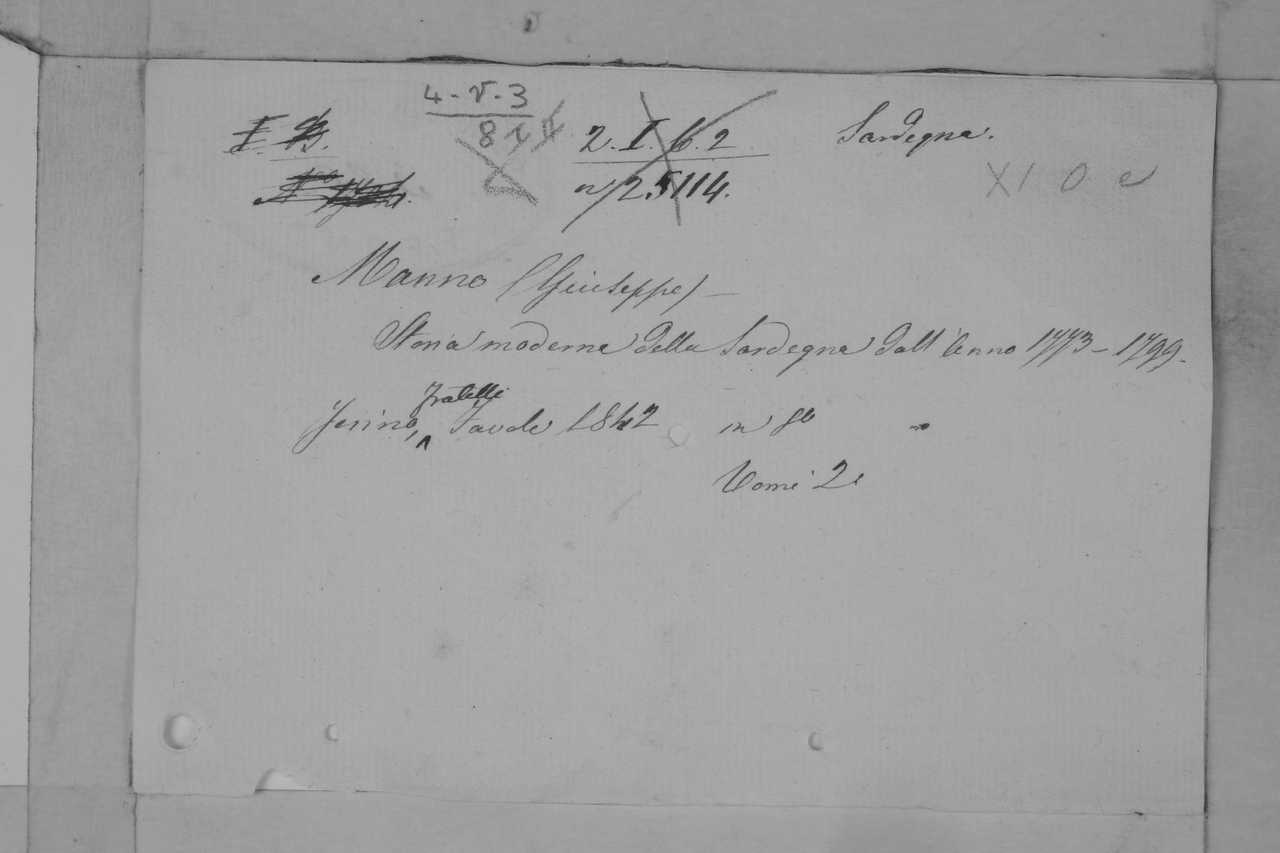 4-V-3
8 I II
2. I. 6. 2
Sardegna.
n 25114.
XI O e
Manno (Giuseppe) —
Storia moderna della Sardegna dall'Anno 1773-1799.
Torino, fratelli Favale 1842 in 8º
Tomi 2